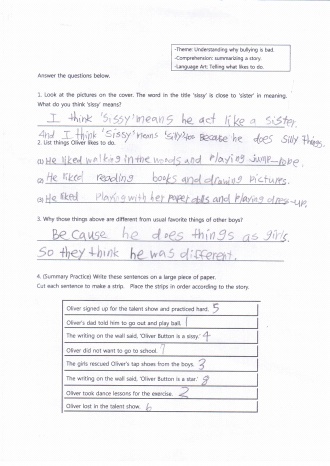 -Theme: Understanding why bullying is bad.
-Comprehension: summarizing a story.
-Language Art: Telling what likes to do.
Answer the questions below.
1. Look at the pictures on the cover. The word in the title 'sissy' is close to 'sister' in meaning.
What do you think 'sissy' means?
I think 'sissy' means he act like a sister.
And I think 'sissy' means silly too because he does silly things.
2. List things Oliver likes to do.
(1) He liked walking in the woods and playing jump-rope.
(2) He liked reading books and drawing pictures.
(3) He liked playing with her paper dolls and playing dress-up.
3. Why those things above are different from usual favorite things of other boys?
Because he does things as girls.
So they think he was different.
4. (Summary Practice) Write these sentences on a large piece of paper.
Cut each sentence to make a strip. Place the strips in order according to the story.
Oliver signed up for the talent show and practiced hard. 5
Oliver's dad told him to go out and play ball. 1
The writing on the wall said, 'Oliver Button is a sissy.' 4
Oliver did not want to go to school. 7
The girls rescued Oliver's tap shoes from the boys. 3
The writing on the wall said, 'Oliver Button is a star.' 8
Oliver took dance lessons for the exercise. 2
Oliver lost in the talent show. 6